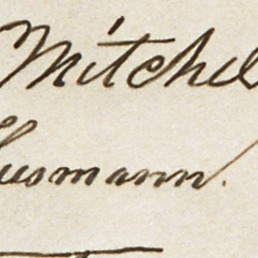 Mitchel
usmann.